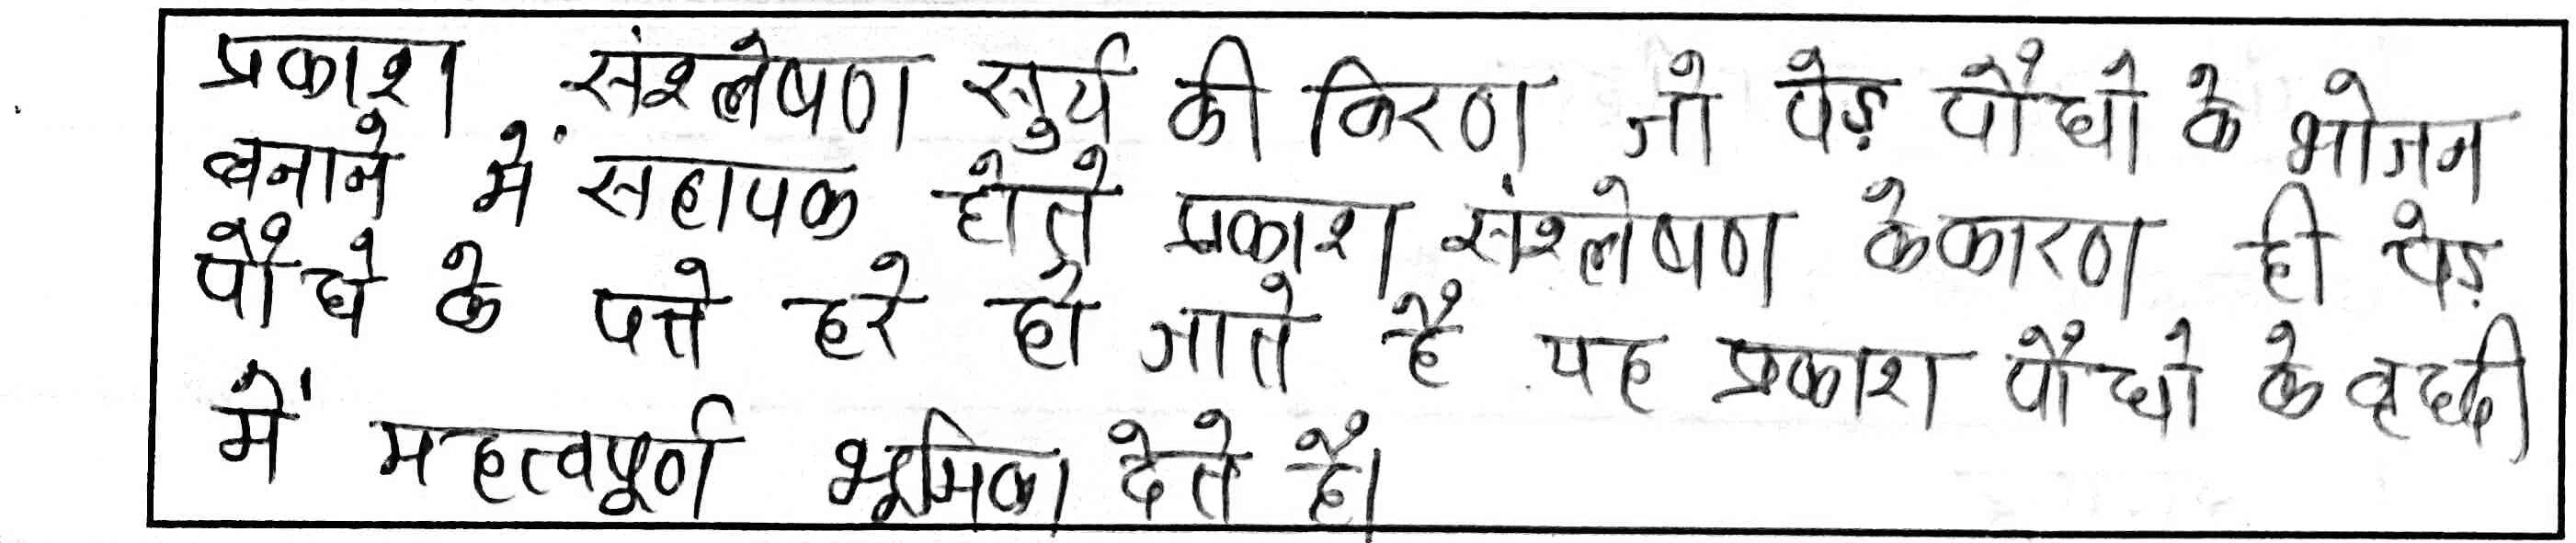 प्रकाश संश्लेषण सुर्य की किरण जो पेड़ पौधो के भोजन
बनाने में सहायक होते प्रकाश संश्लेषण के कारण ही पेड़
पौधे के पत्ते हरे हो जाते है यह प्रकाश पौधो के वृद्धी
में महत्वपूर्ण भूमिका देते है।